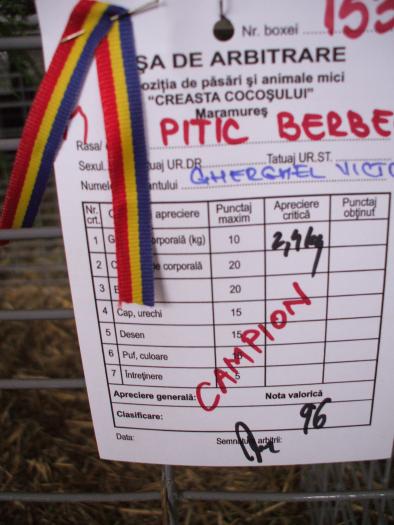 Nr. boxei 153
ȘA DE ARBITRARE
oziția de păsări și animale mici
"CREASTA COCOȘULUI"
Maramureș
Rasa/ PITIC BERBE
Sexul. uaj UR.DR. Tatuaj UR.ST.
Numele antului GHERGHEL VICTO
Nr. crt. apreciere Punctaj maxim Apreciere critică Punctaj obținut
1 G orporală (kg) 10 2,4 kg
2 C e corporală 20
3 B 20
4 Cap, urechi 15
5 Desen 15
6 Puf, culoare
7 Întreținere 5
CAMPION
Apreciere generală: Nota valorică
Clasificare: 96
Data: Semnătura arbitrii: